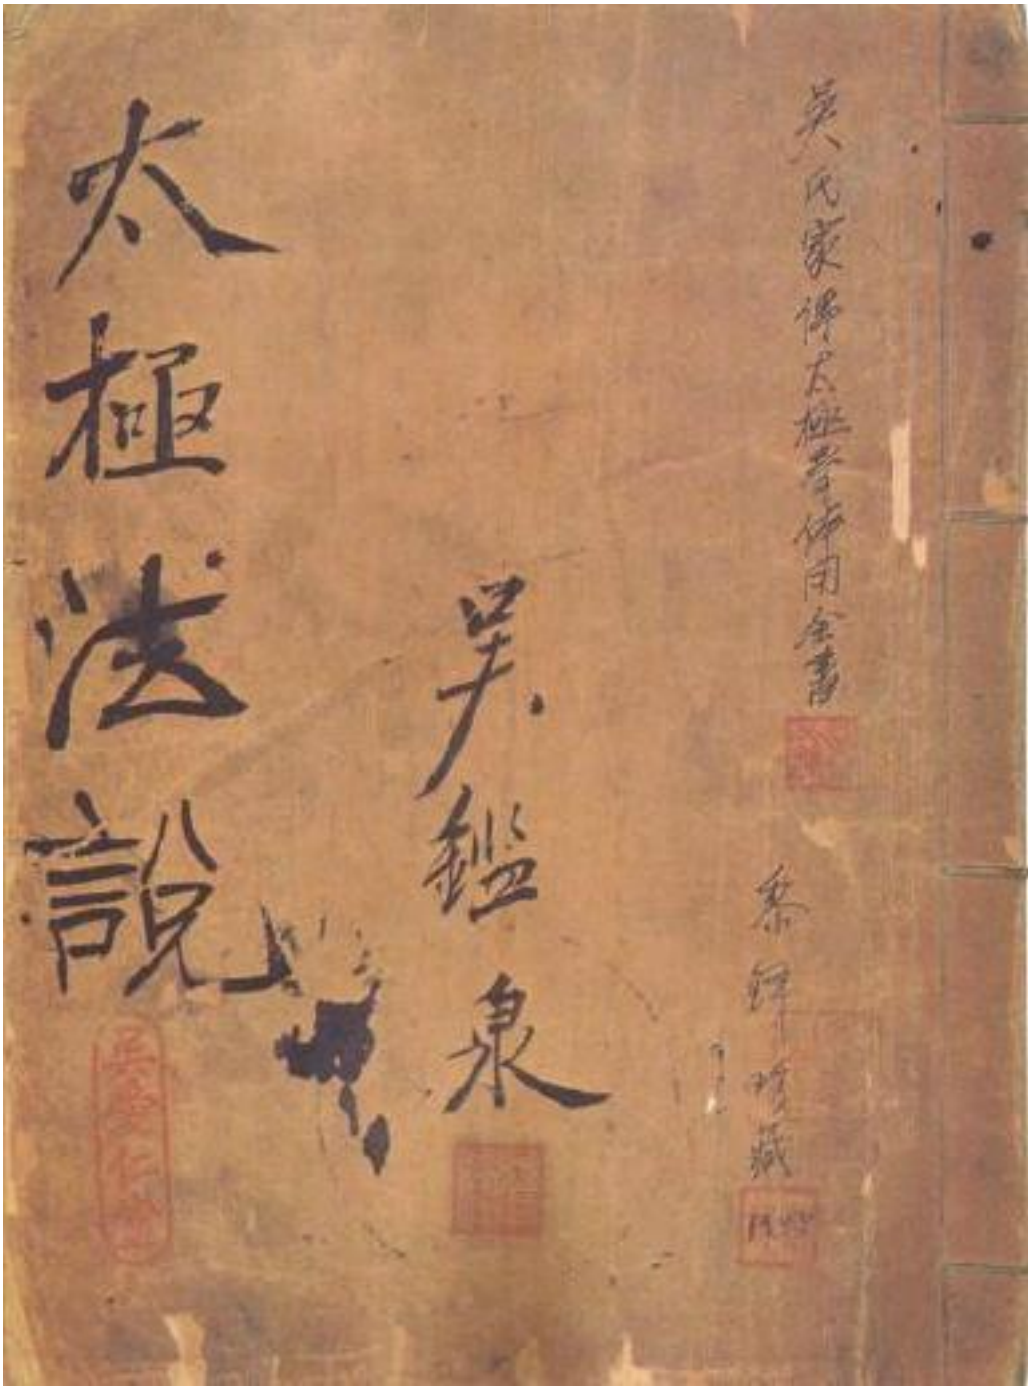 吳氏家傳太極拳体用全書
黎鐸珍藏
吳鑑泉
太極法説